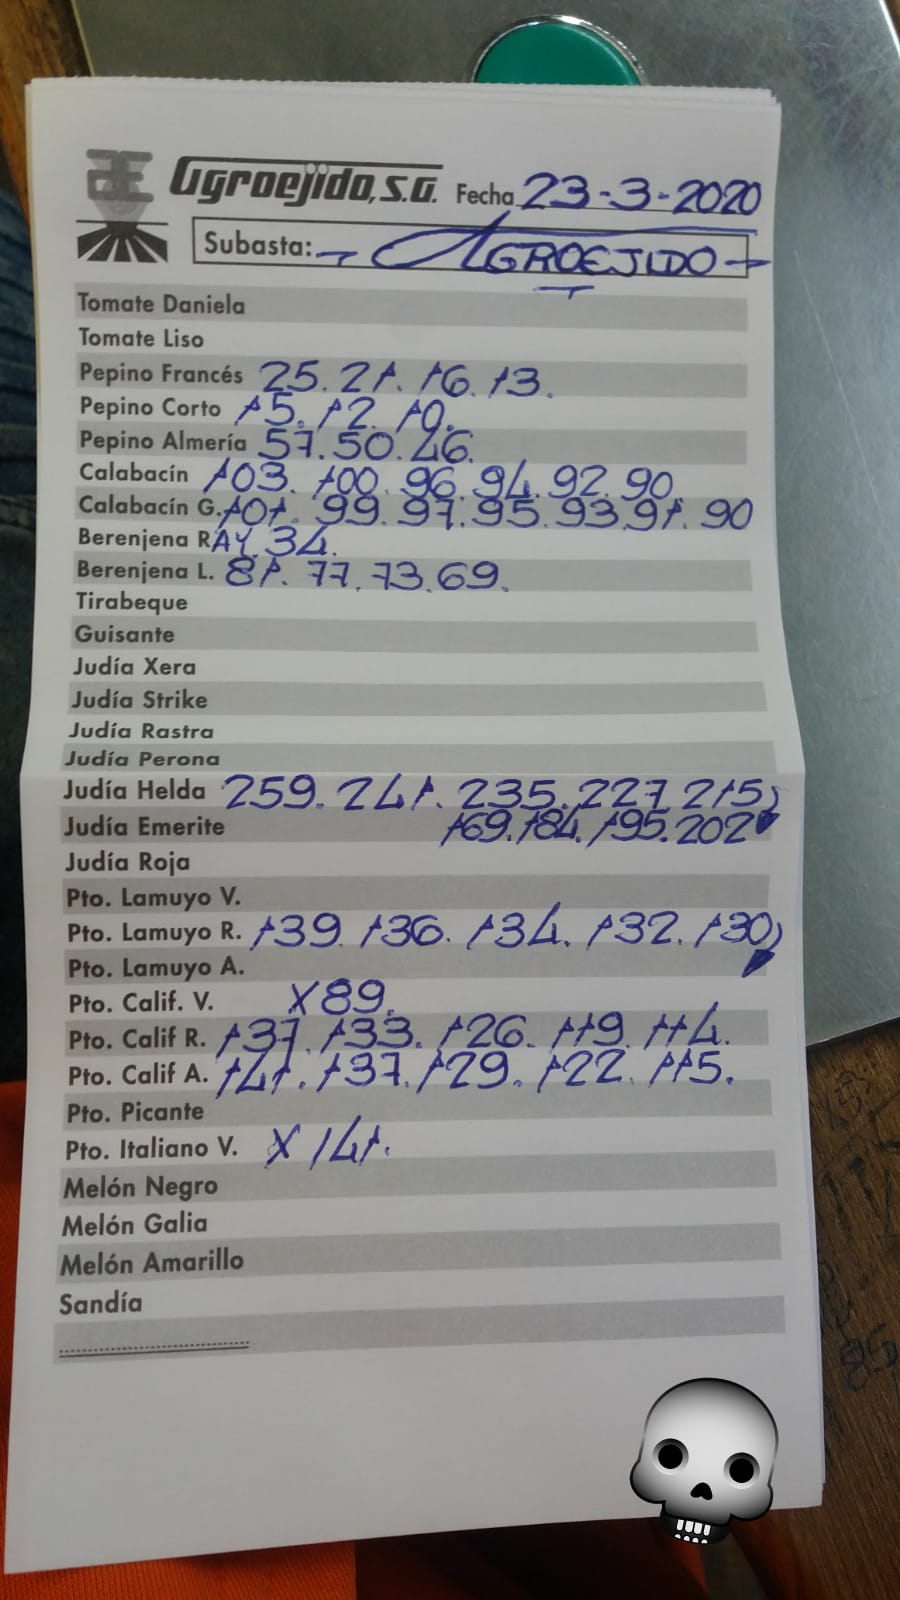 Agroejido, S.A. Fecha 23-3-2020
Subasta: - AGROEJIDO -
Tomate Daniela
Tomate Liso
Pepino Francés 25. 21. 16. 13.
Pepino Corto 15. 12. 10.
Pepino Almería 57. 50. 46.
Calabacín 103. 100. 96. 94. 92. 90
Calabacín G. 101. 99. 97. 95. 93. 91. 90
Berenjena RAY. 34.
Berenjena L. 81. 77. 73. 69.
Tirabeque
Guisante
Judía Xera
Judía Strike
Judía Rastra
Judía Perona
Judía Helda 259. 241. 235. 227. 215
Judía Emerite 169. 184. 195. 202
Judía Roja
Pto. Lamuyo V.
Pto. Lamuyo R. 139. 136. 134. 132. 130
Pto. Lamuyo A.
Pto. Calif. V. X 89.
Pto. Calif R. 137. 133. 126. 119. 114.
Pto. Calif A. 141. 137. 129. 122. 115.
Pto. Picante
Pto. Italiano V. X 141.
Melón Negro
Melón Galia
Melón Amarillo
Sandía